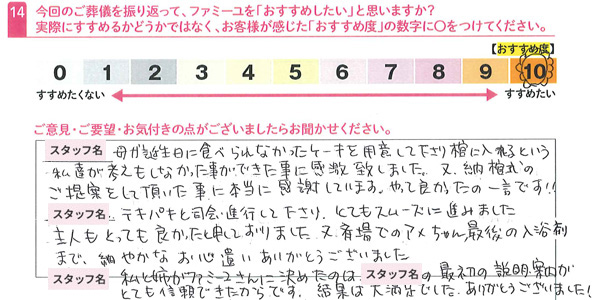 14 今回のご葬儀を振り返って、ファミーユを「おすすめしたい」と思いますか?
実際にすすめるかどうかではなく、お客様が感じた「おすすめ度」の数字に○をつけてください。
【おすすめ度】
0 1 2 3 4 5 6 7 8 9 10
すすめたくない すすめたい
ご意見・ご要望・お気付きの点がございましたらお聞かせください。
スタッフ名 母が誕生日に食べられなかったケーキを用意して下さり棺に入れるという
私達が考えもしなかった事ができた事に感激致しました。又、納棺式の
ご提案をして頂いた事に本当に感謝しています。やって良かったの一言です!!
スタッフ名 テキパキと司会進行して下さり、とてもスムーズに進みました
主人もとっても良かったと申しておりました。又斎場でのアメちゃん最後の入浴剤
まで、細やかなお心遣いありがとうございました
スタッフ名 私と姉がファミーユさんに決めたのは スタッフ名 の最初の説明・案内が
とても信頼できたからです。結果は大満足でした。ありがとうございました!